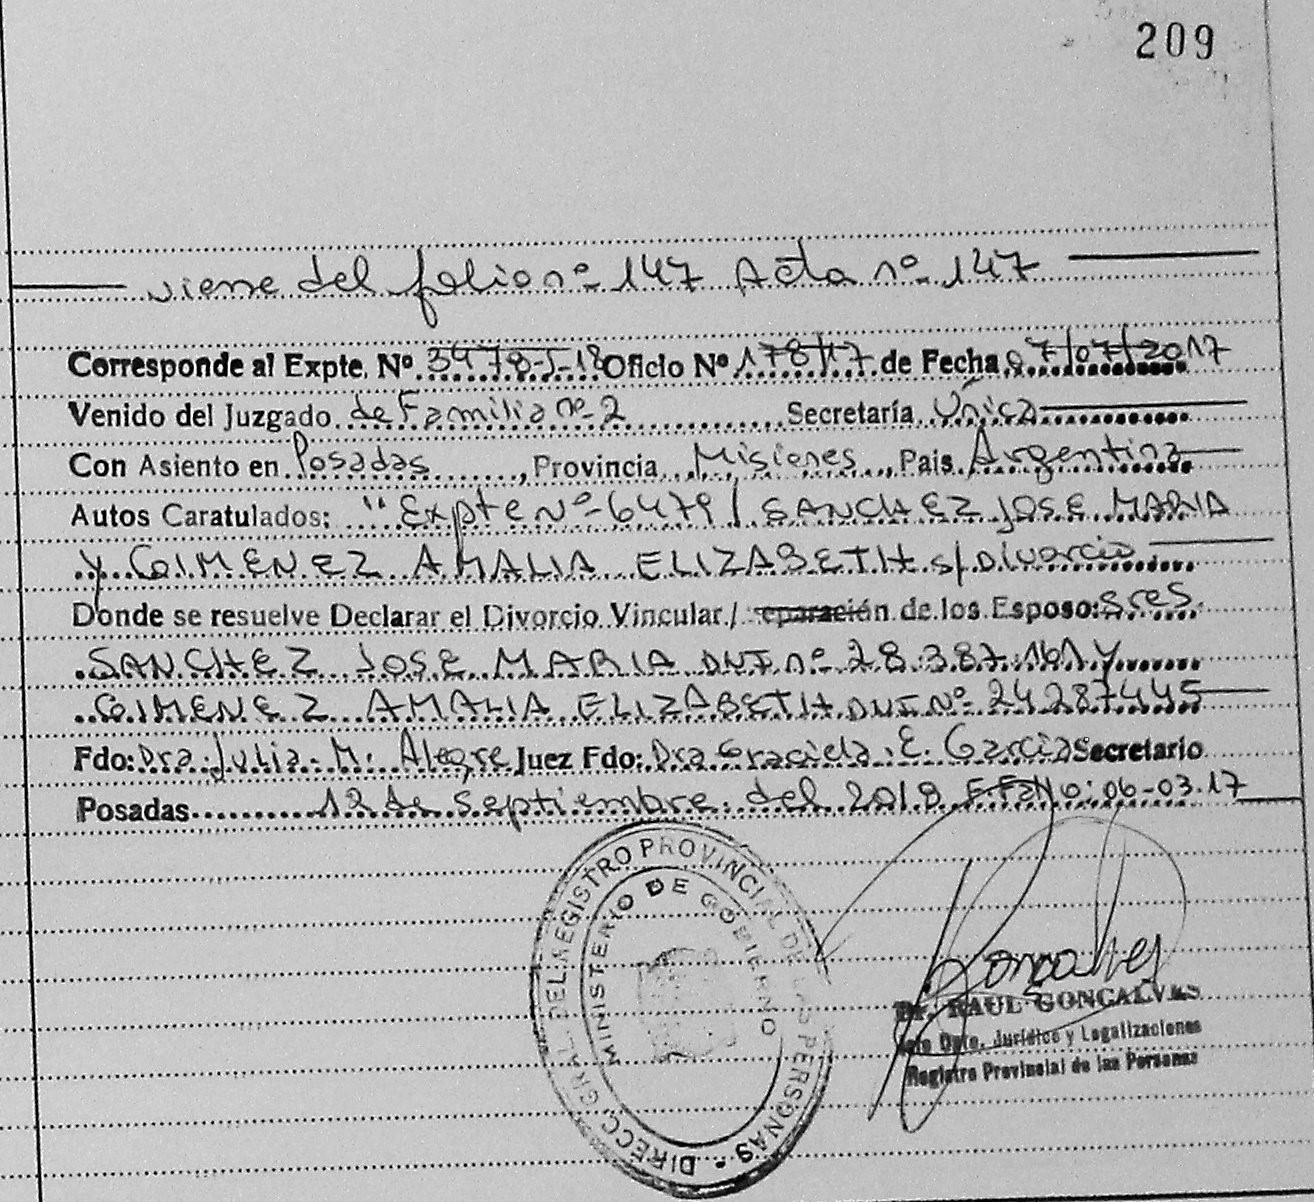 209
viene del folio nº 147 Acta nº 147
Corresponde al Expte. Nº 3978-S-18 Oficio Nº 178/17 de Fecha 07/07/2017
Venido del Juzgado de Familia nº 2 Secretaría Única
Con Asiento en Posadas, Provincia Misiones, Pais Argentina
Autos Caratulados: "Expte Nº 6479/ SANCHEZ JOSE MARIA
y GIMENEZ AMALIA ELIZABETH s/Divorcio
Donde se resuelve Declarar el Divorcio Vincular/ eparación de los Esposo: Sres
SANCHEZ JOSE MARIA DNI nº 28.387.161 y
GIMENEZ AMALIA ELIZABETH DNI Nº 24287445
Fdo: Dra. Julia. M. Alegre Juez Fdo: Dra Graciela. E. Garcia Secretario
Posadas 12 de septiembre del 2018 06-03-17
DIRECC. GRAL. DEL REGISTRO PROVINCIAL DE LAS PERSONAS
MINISTERIO DE GOBIERNO
Gonçalves
Dr. RAUL GONÇALVES
Jefe Dpto. Jurídico y Legalizaciones
Registro Provincial de las Personas